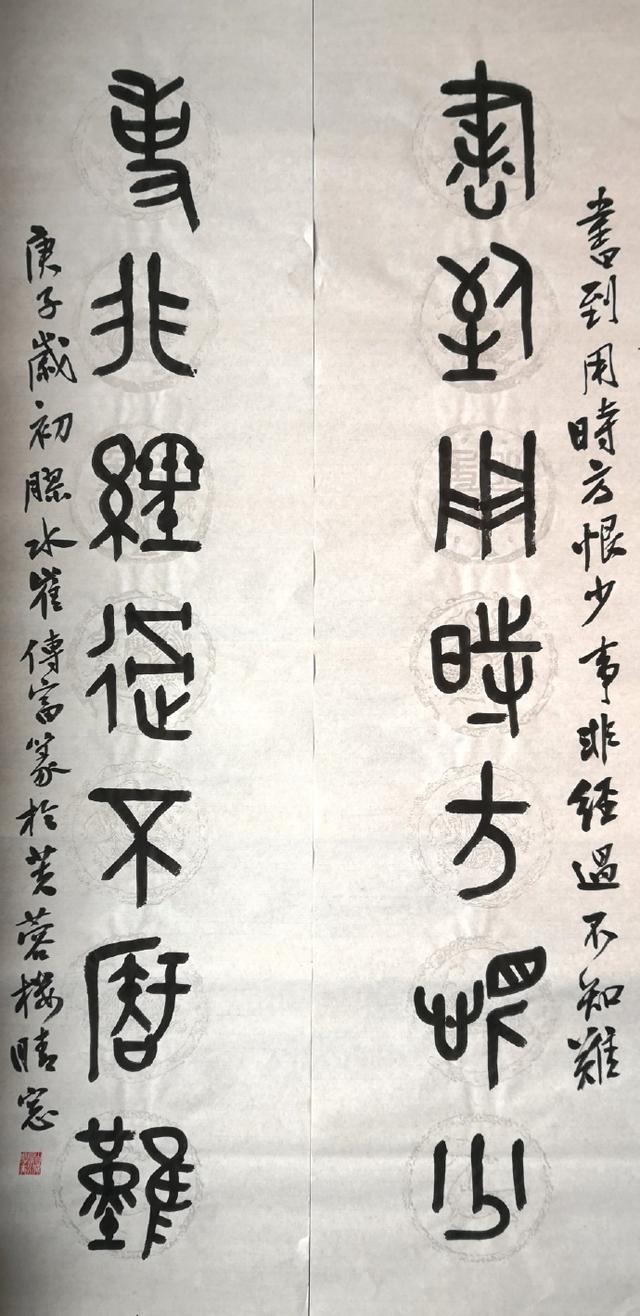 書到用時方恨少事非經過不知難
書到用時方恨少
事非經過不知難
庚子歲初膠水崔傳富篆於芙蓉樓晴窓